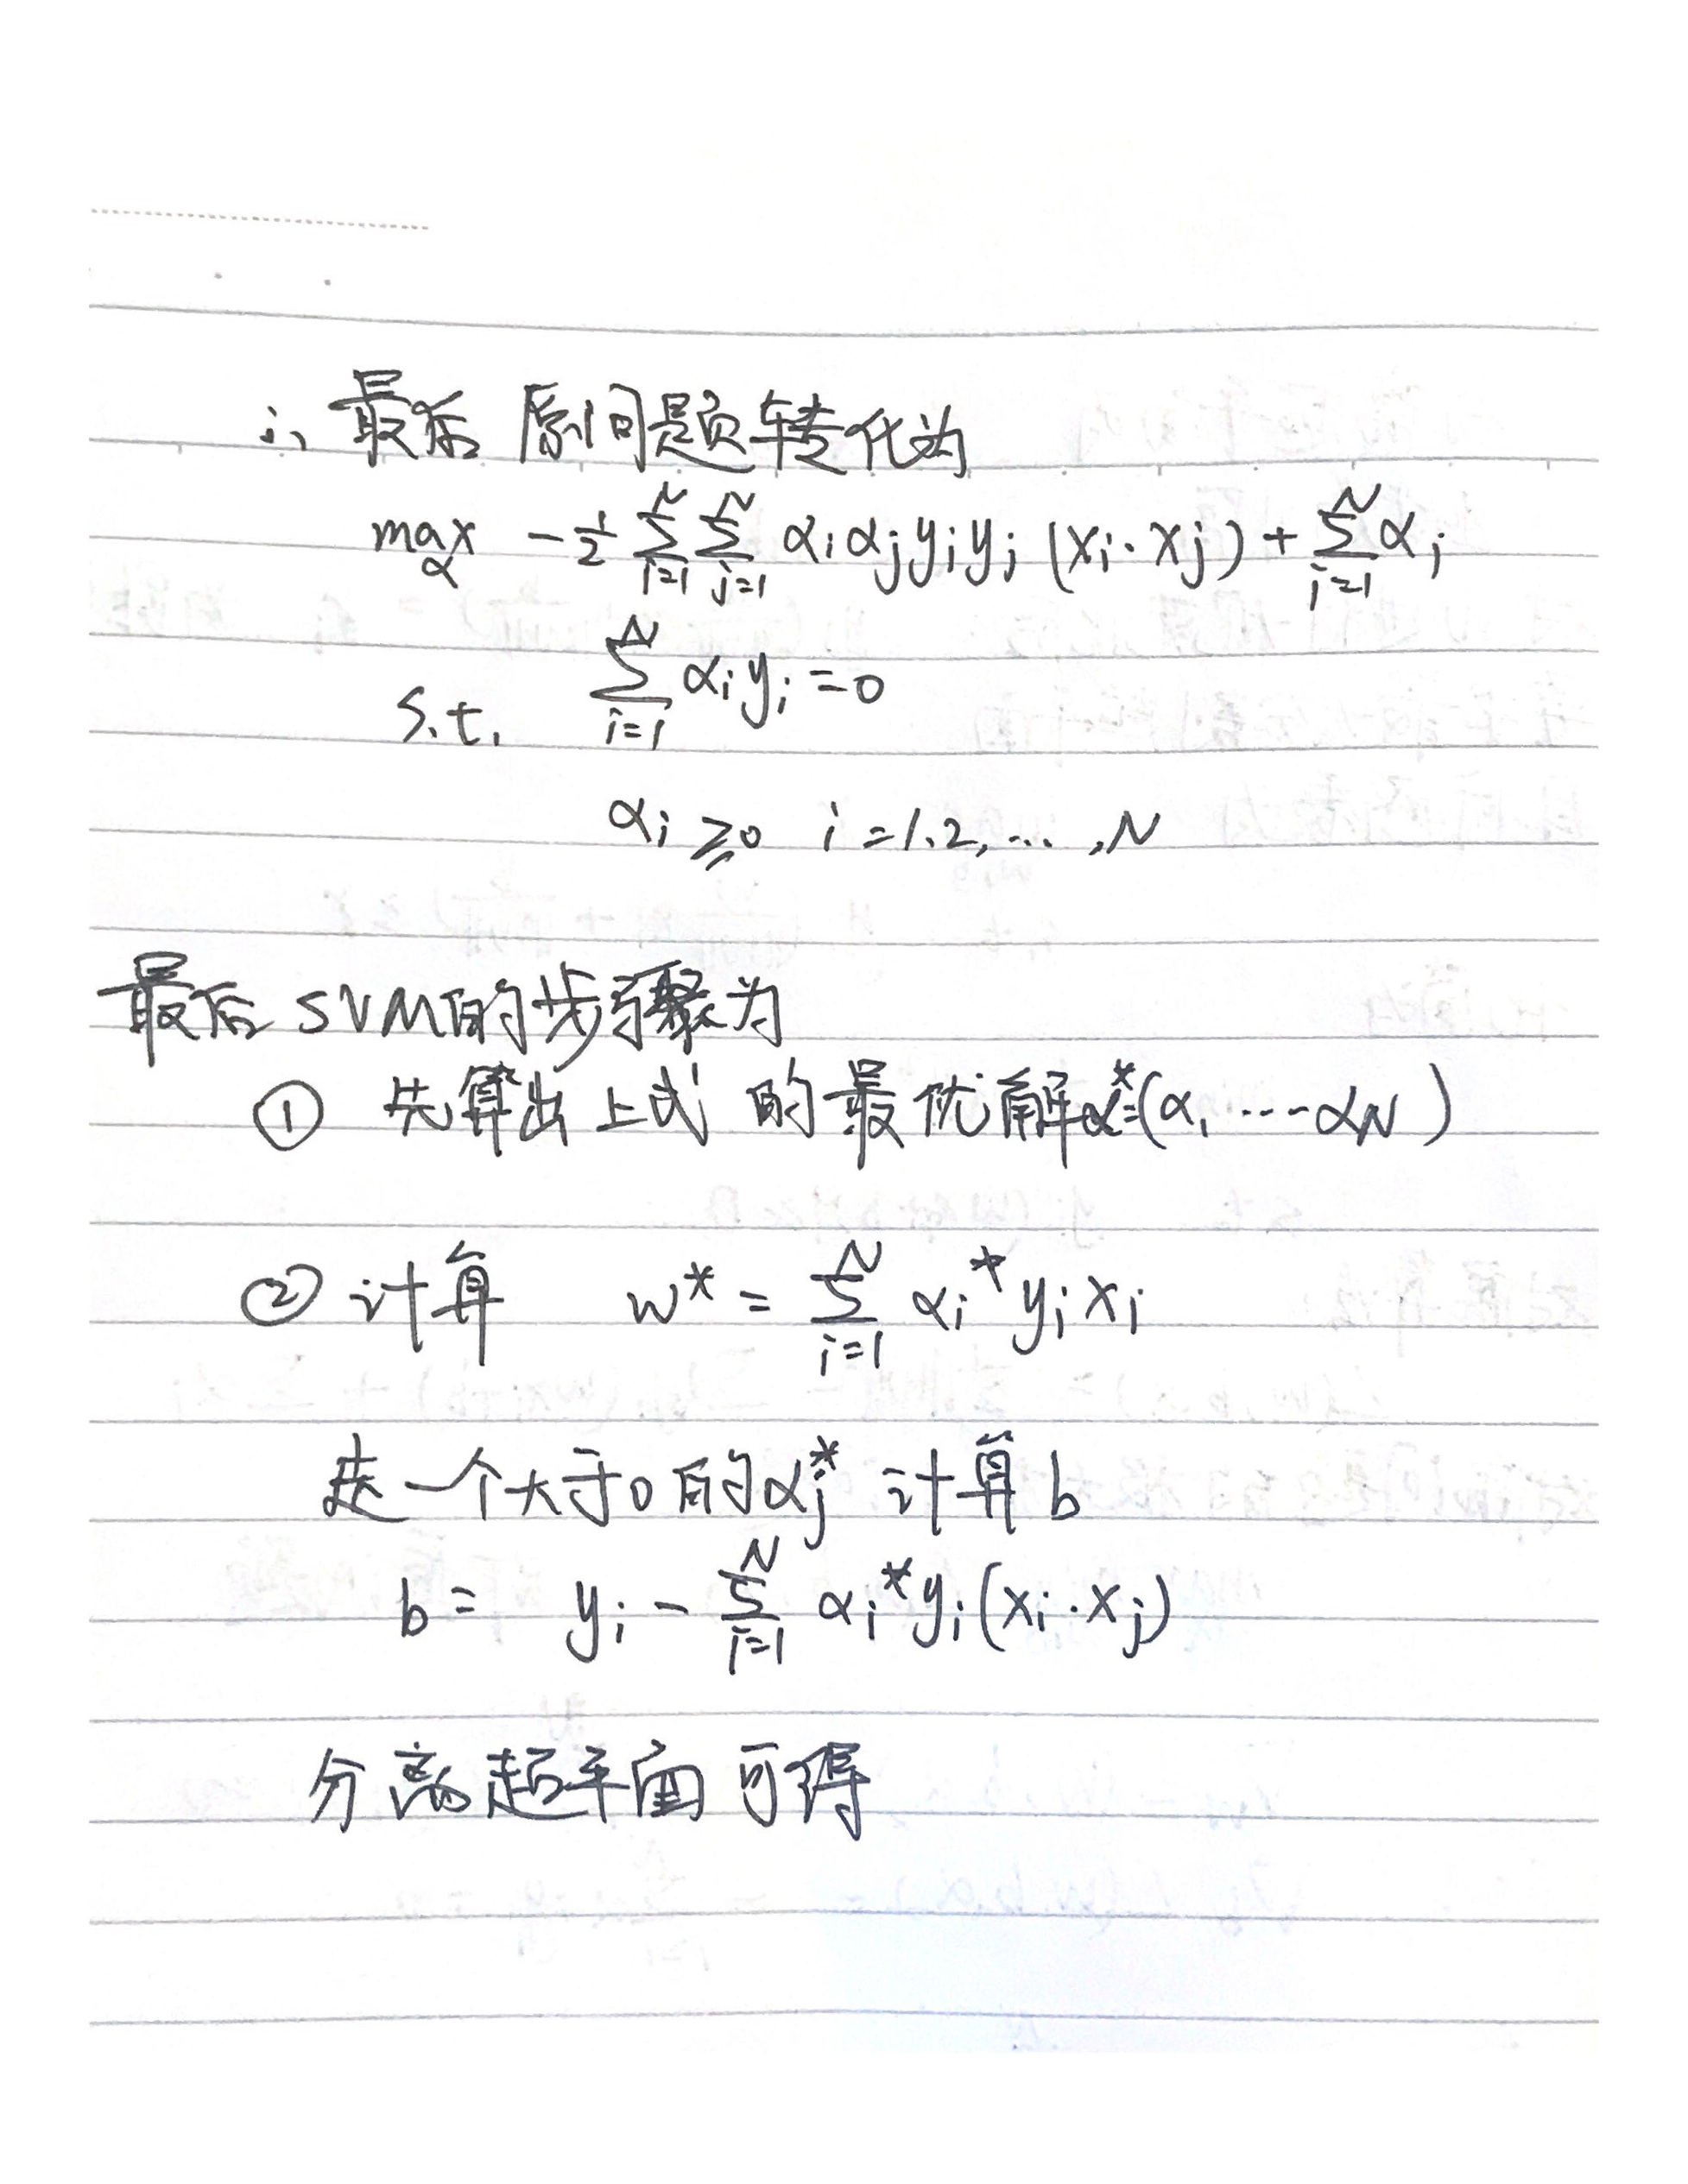 ∴ 最后 原问题转化为
max_α -1/2 Σ_{i=1}^{N} Σ_{j=1}^{N} α_i α_j y_i y_j (x_i · x_j) + Σ_{i=1}^{N} α_i
s.t. Σ_{i=1}^{N} α_i y_i = 0
α_i ≥ 0 i = 1.2, ... , N
最后 SVM的步骤为
① 先算出上式 的最优解α*=(α_1 ---- α_N)
② 计算 w* = Σ_{i=1}^{N} α_i* y_i x_i
选一个大于0的α_j* 计算 b
b = y_i - Σ_{i=1}^{N} α_i* y_i (x_i · x_j)
分离超平面可得